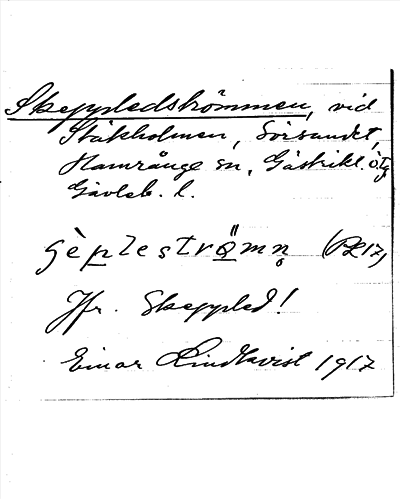 Skeppledströmmen, vid
Stäkholmen, Sörsundet,
Hamrånge sn, Gästrikl.
Gävleb. l.
Jfr. Skeppled!
Einar Lindkvist 1917